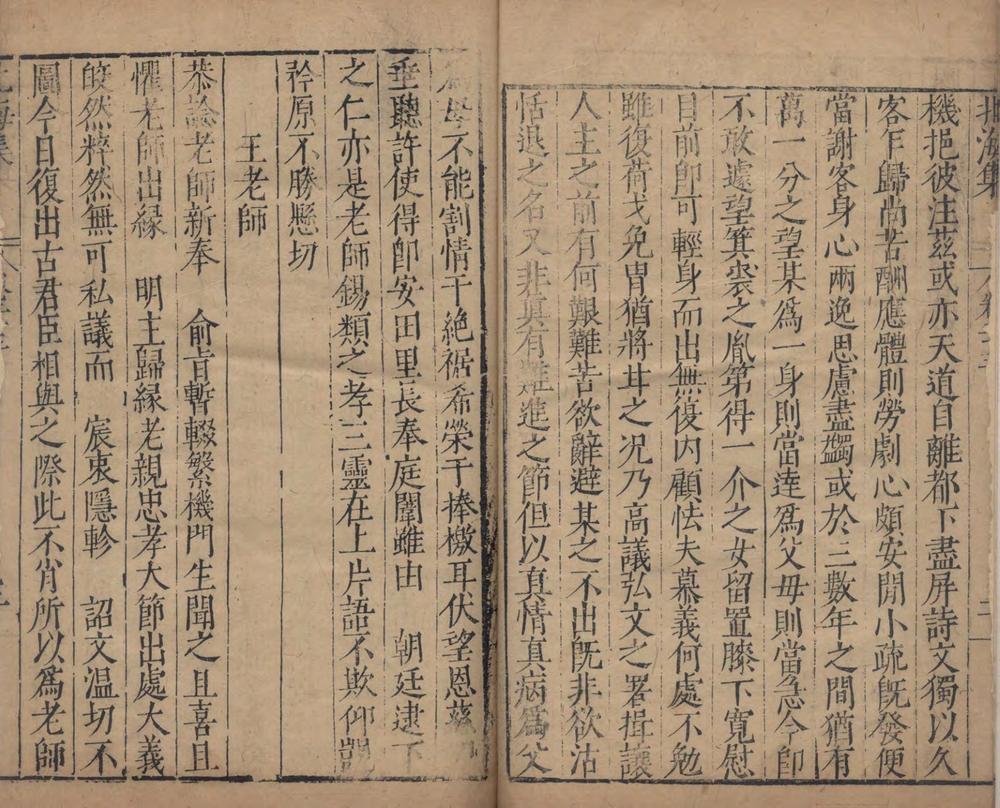 北海集 卷二十三 二
機挹彼注茲或亦天道自離都下盡屏詩文獨以久
客乍歸尚苦酬應體則勞劇心頗安閒小疏旣發便
當謝客身心兩逸思慮盡蠲或於三數年之間猶有
萬一分之望某爲一身則當達爲父母則當急今卽
不敢遽望箕裘之胤第得一介之女留置膝下寬慰
目前卽可輕身而出無復内顧怯夫慕義何處不勉
雖復荷戈免胄猶將甘之况乃高議弘文之署揖讓
人主之前有何艱難苦欲辭避某之不出旣非欲沽
恬退之名又非眞有難進之節但以真情真病爲父
爲母不能割情于絶裾希榮于捧檄耳伏望恩慈
垂聽許使得卽安田里長奉庭闈雖由 朝廷逮下
之仁亦是老師錫類之孝三靈在上片語不欺仰覬
矜原不勝懸切
王老師
恭諗老師新奉 俞旨暫輟繁機門生聞之且喜且
懼老師出緣 明主歸緣老親忠孝大節出處大義
皎然粹然無可私議而 宸衷隱軫 詔文温切不
圖今日復出古君臣相與之際此不肖所以爲老師
北海集